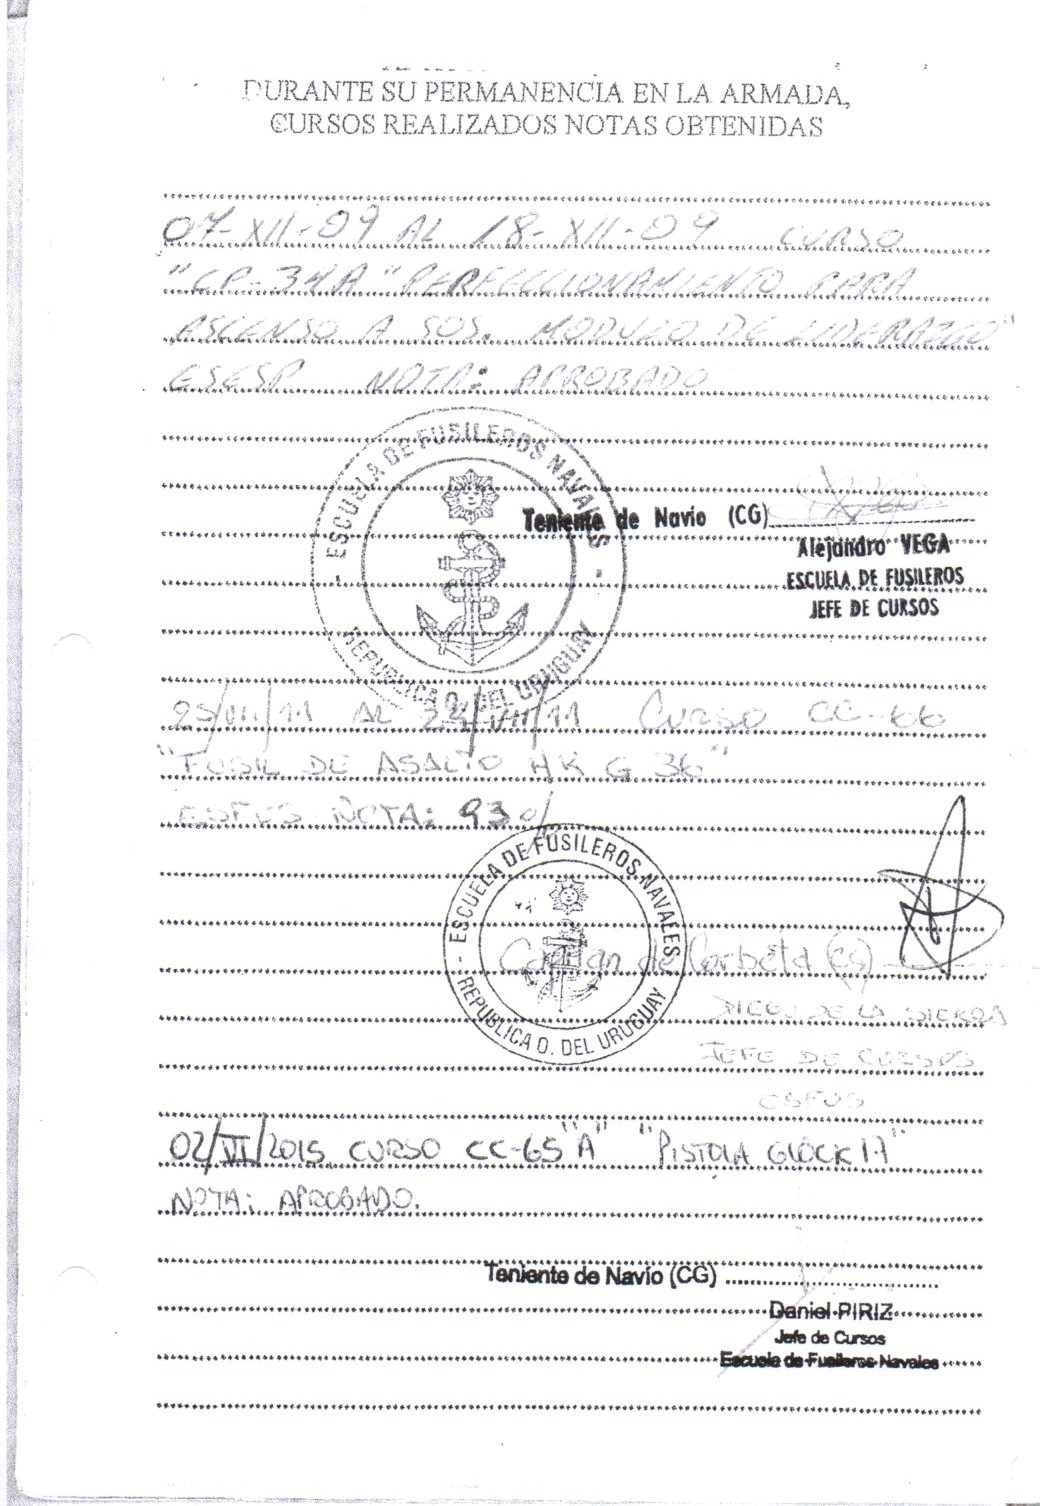 DURANTE SU PERMANENCIA EN LA ARMADA,
CURSOS REALIZADOS NOTAS OBTENIDAS
07-XII-09 AL 18-XII-09 CURSO
"CP-34'A" PERFECCIONAMIENTO PARA
ASCENSO A SOS. MODULO DE LIDERAZGO"
ESESP NOTA: APROBADO
- ESCUELA DE FUSILEROS NAVALES -
REPUBLICA O. DEL URUGUAY
Teniente de Navio (CG)
Alejandro VEGA
ESCUELA DE FUSILEROS
JEFE DE CURSOS
25/VII/11 AL 29/VII/11 CURSO CC-66
"FUSIL DE ASALTO HK G 36"
ESFUS NOTA: 93%
- ESCUELA DE FUSILEROS NAVALES -
REPUBLICA O. DEL URUGUAY
Capitan de Corbeta (CG)
DIEGO DE LA SIERRA
JEFE DE CURSOS
ESFUS
02/VI/2015 CURSO CC-65"A" "PISTOLA GLOCK 17"
NOTA: APROBADO.
Teniente de Navío (CG)
Daniel PIRIZ
Jefe de Cursos
Escuela de Fusileros Navales